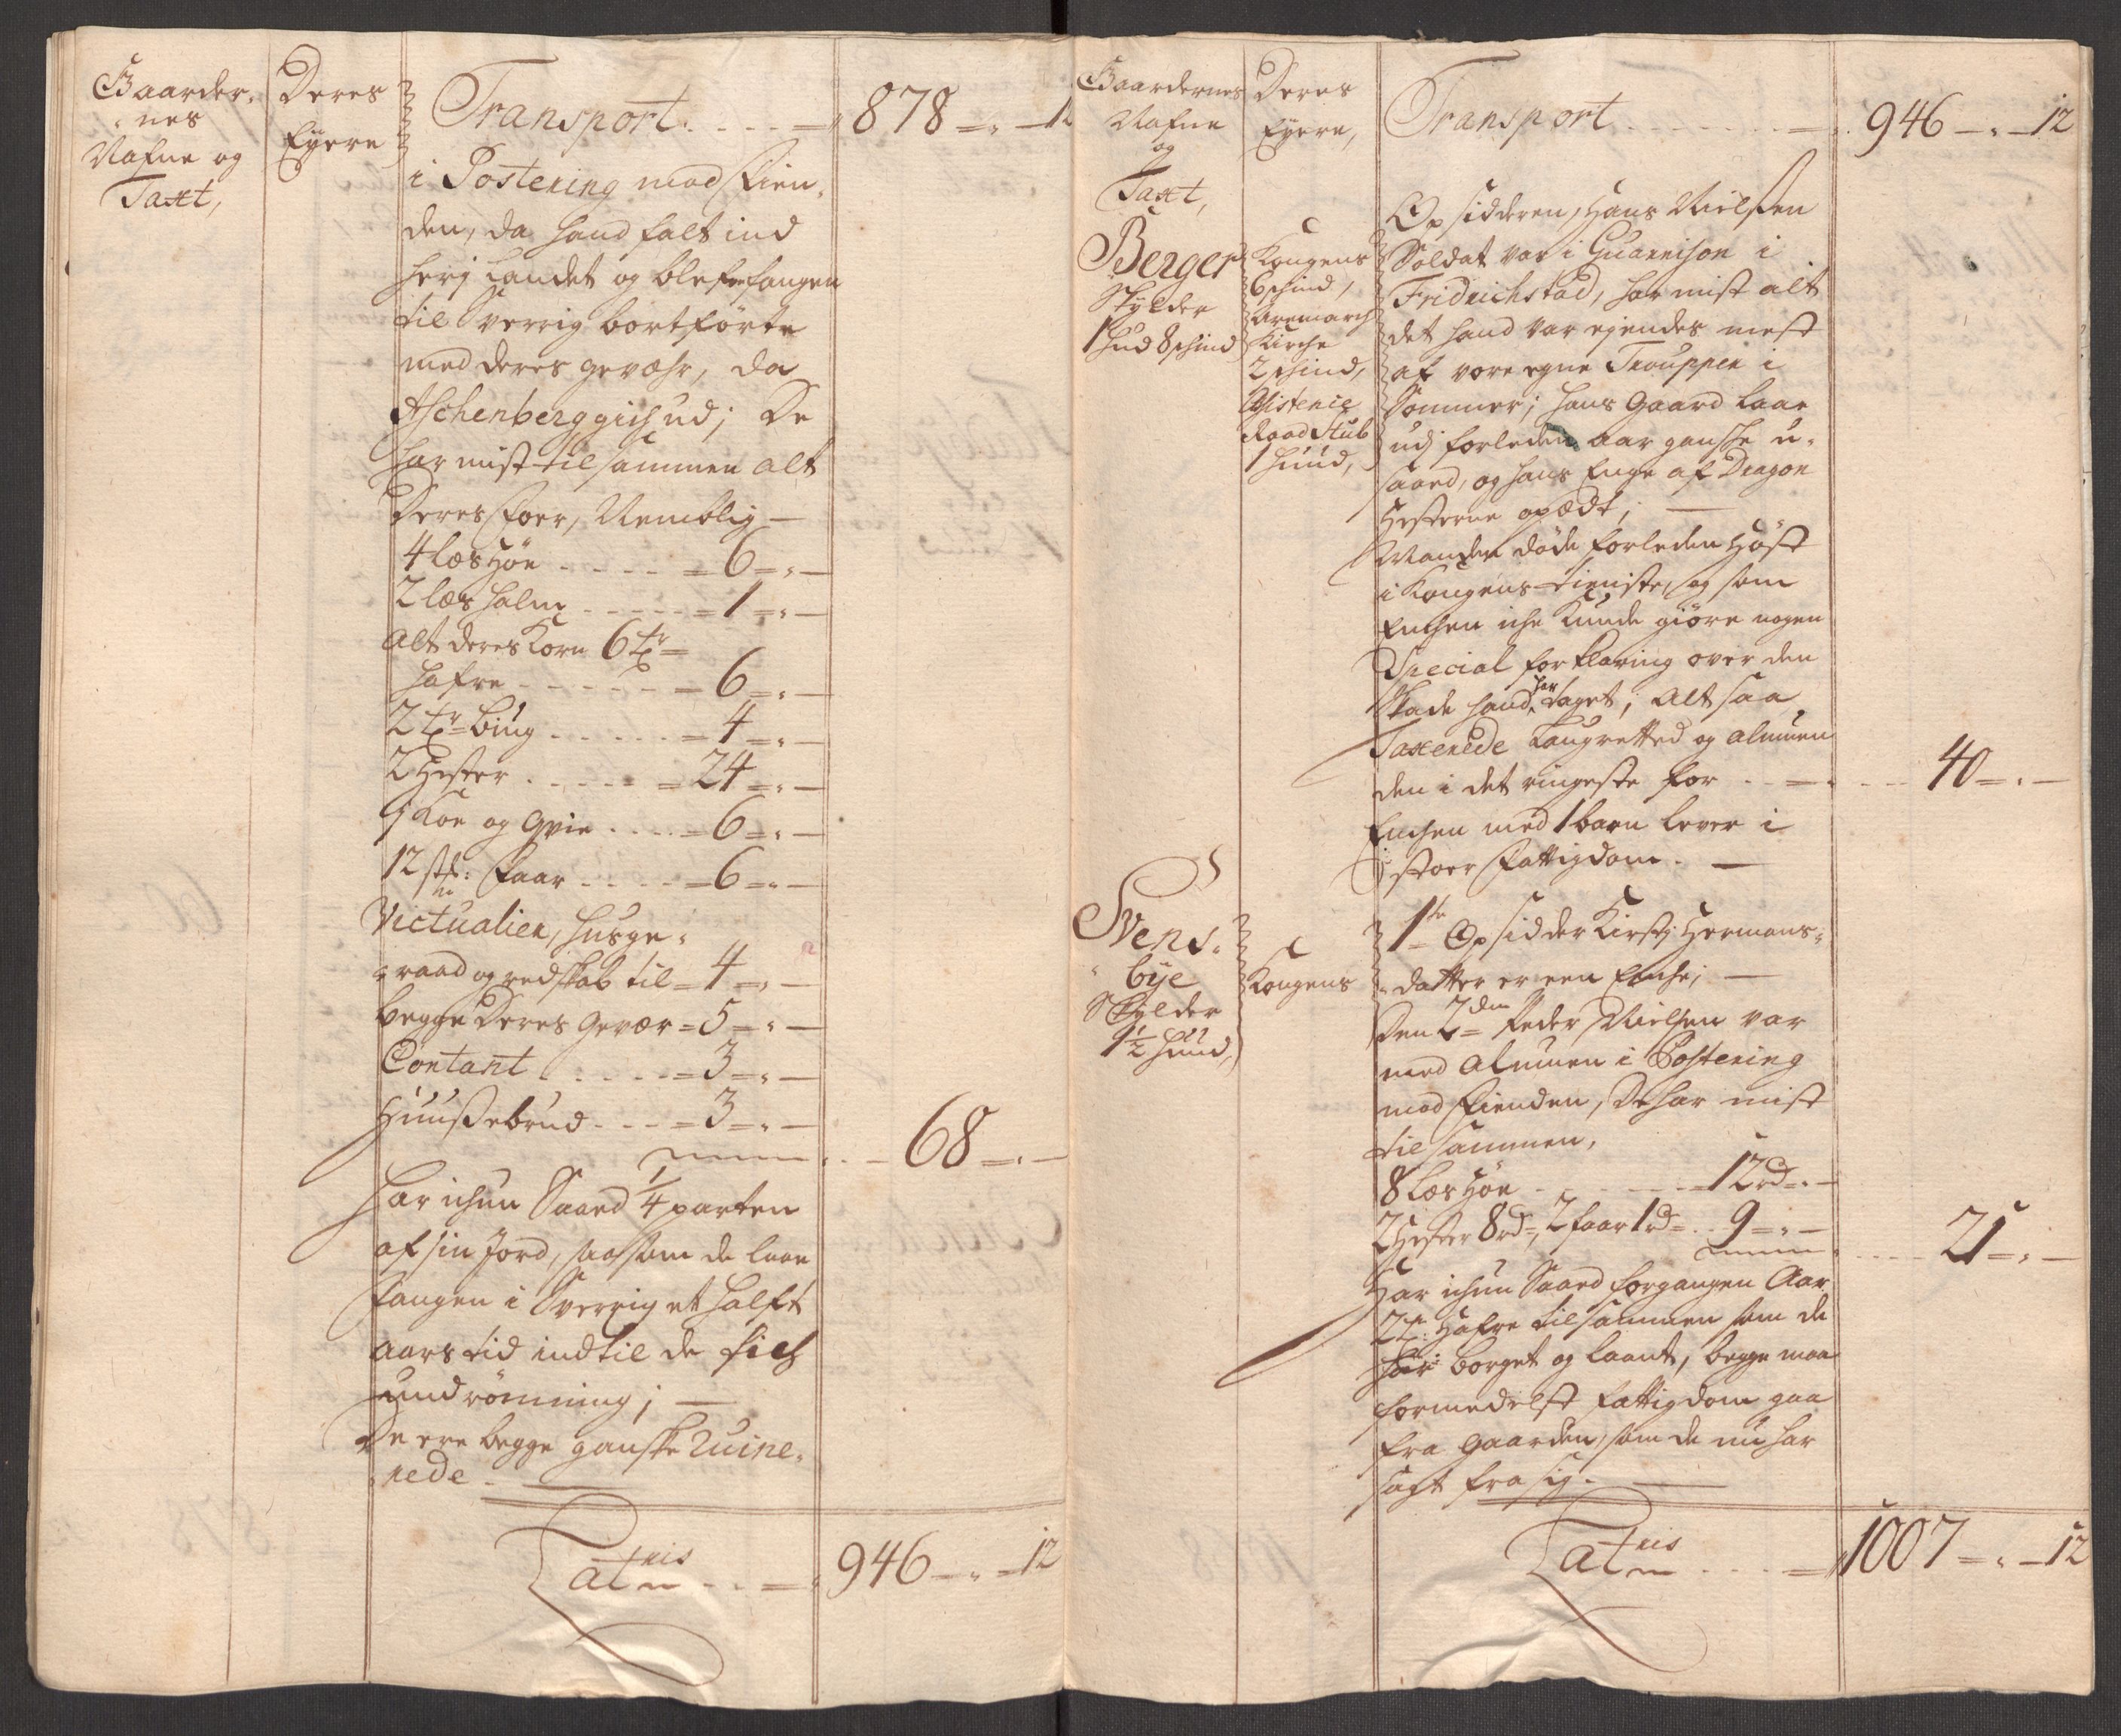 Gaarder,
nes
Nafne og
Taxt,
Deres
Eyere
Transport. . . . = 878 = „ — 12
i Postering mod Fien,
den, da hand falt ind
heri Landet og blef fangen
til Sverrig bortførte
med deres gevæhr, da
Aschenberg gich ud; De
har mist tilsammen alt
Deres Foer, Nemblig —
4 læs Høe . . . . . = 6 = „ —
2 læs halm . . . . . = 1 = „ —
Alt deres Korn 6 tr =
hafre . . . . . . = 6 = „ —
2 tr = Biug . . . . . . = 4 = „ —
2 Hester . . . . . . = 24 = „ —
1 Koe og Qvie . . . . = 6 = „ —
12 stk: Faar . . . . . = 6 = „ —
Victualier, husge,
„raad og redskab til = 4 = „ —
begge Deres Gevær = 5 = „ —
Contant . . . . . . = 3 = „ —
Huusebrud . . . . = 3 = „ —
. . — 68 = „ —
har ichun Saaed 1/4 parten
af sin Jord, saasom de laae
fangen i Sverrig et halft
aars tid indtil de fich
undrømning; —
De ere begge ganske Ruine,
„rede —
Latris
. . . = „ 946 = „ = 12
Gaardernes
Nafne
og
Taxt,
Deres
Eyere,
Transport . . . . . . . = „ 946 — „ — 12
Berger
Skylder
1 hud 8 schind
Kongens
6 schind,
Aremarch
Kirche
2 schind,
Assistence
Raad Stub
1 Huud,
Opsidderen, Hans Nielsen
Soldat var i Guarnison i
Fridrichstad, har mist alt
det hand var ejendes mest
af vore egne Trouppen i
Sommer; hans Gaard laae
udi forleden aar gansche u,
saaed, og hans Enge af Dragon
Hesterne opædt; —
Manden døde forleden Høst
i Kongens tieniste, og som
Enchen iche Kunde giøre nogen
Special forklaring over den
Skade hand har taget; Alt saa
Taxerede Laugretted og almuen
den i det ringeste for . . = „ . . . 40 = „ —
Enchen med 1 barn lever i
stoer Fattigdom. —
Svens,
„bye
Skylder
1 1/2 Huud,
Kongens
1te Opsidder Kirsti Hermans,
„datter er een Enche; —
Den 2den Peder Nielsen var
med Almuen i Postering
mod Fienden, De har mist
tilsammen,
8 læs Høe . . . . . . = 12 rd = „ —
2 Hester 8 rd =, 2 faar 1 rd = . . 9 = „ —
. . . . . 21 = „ —
Har ichun Saaed forgangen Aar
2 tr: Hafre tilsammen som de
har borget og laant, begge maa
formedelst fattigdom gaa
fra gaarden, som de nu har
sagt fra sig. —
Latris
. . . . = „ 1007 = „ — 12